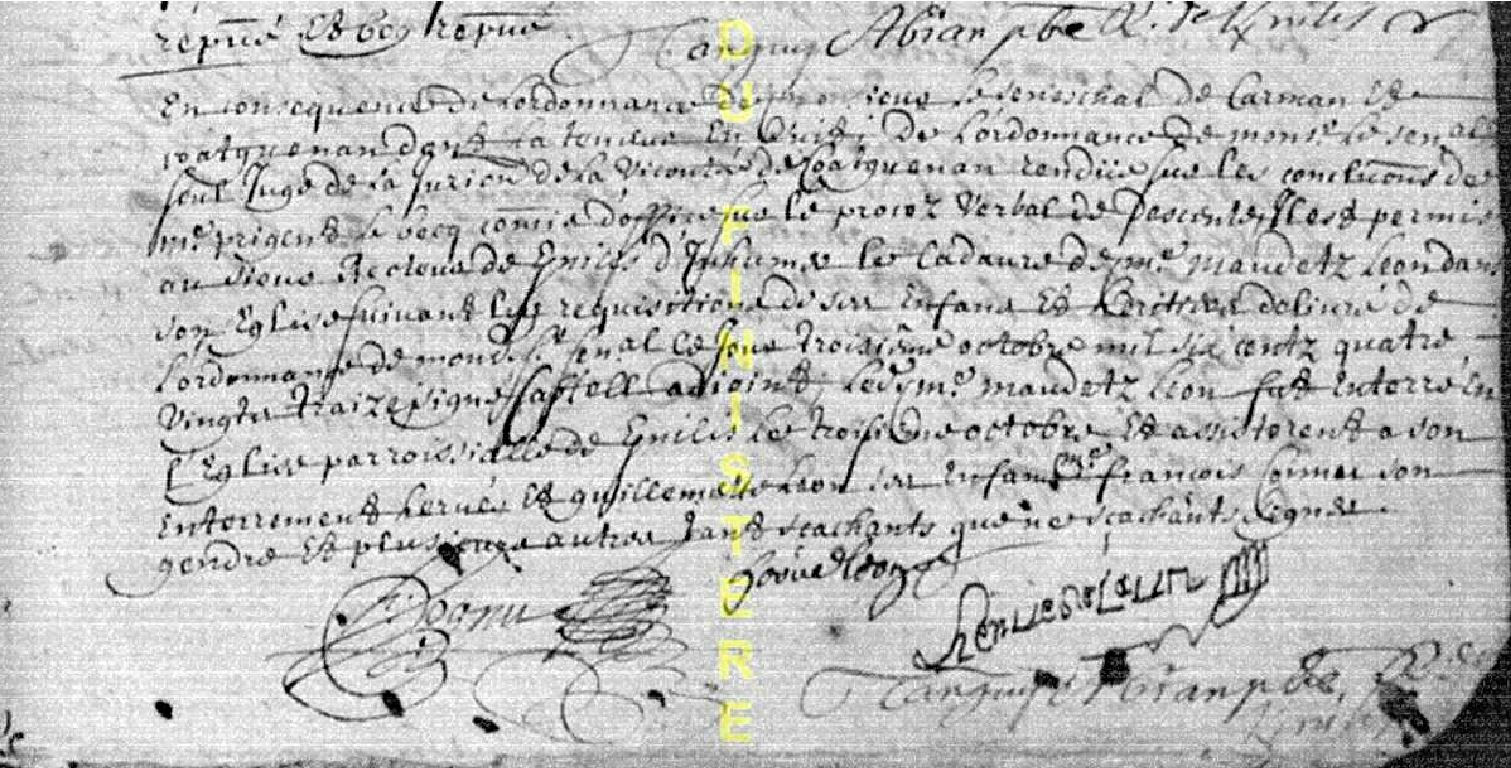 Tanguy Abian pbre
En consequence de L'ordonnance de monsieur Le seneschal de Carman et
coatquenan dont La teneur En suit de L'ordonnance de monsr Le senal
seul Juge de La Jurion de La Viconté de Coatquenan rendüe sur les conclu͠ons de
me prigent Le becq comis d'office sur le procez Verbal de descente, Il est permis
au sieur Recteur de Guilis d'Inhumer le Cadavre de me maudetz Leon dans
son Eglise suivant les requisitions de ses Enfans Et heritiers delivré de
L'ordonnance de mondt sr senal ce Jour troisième octobre mil six centz quatre
Vingts traize signé Castell adjoint, Ledt me maudetz Leon fut Enterré En
L'Eglise parroissialle de Guilis Le troisième octobre Et assisterent a son
Enterrement hervé Et guillemette Leon ses Enfans françois son
gendre Et plusieurs autres tant scachants que ne scachants signer
hervé leon
Tanguy Abian pbre
DU FINISTERE